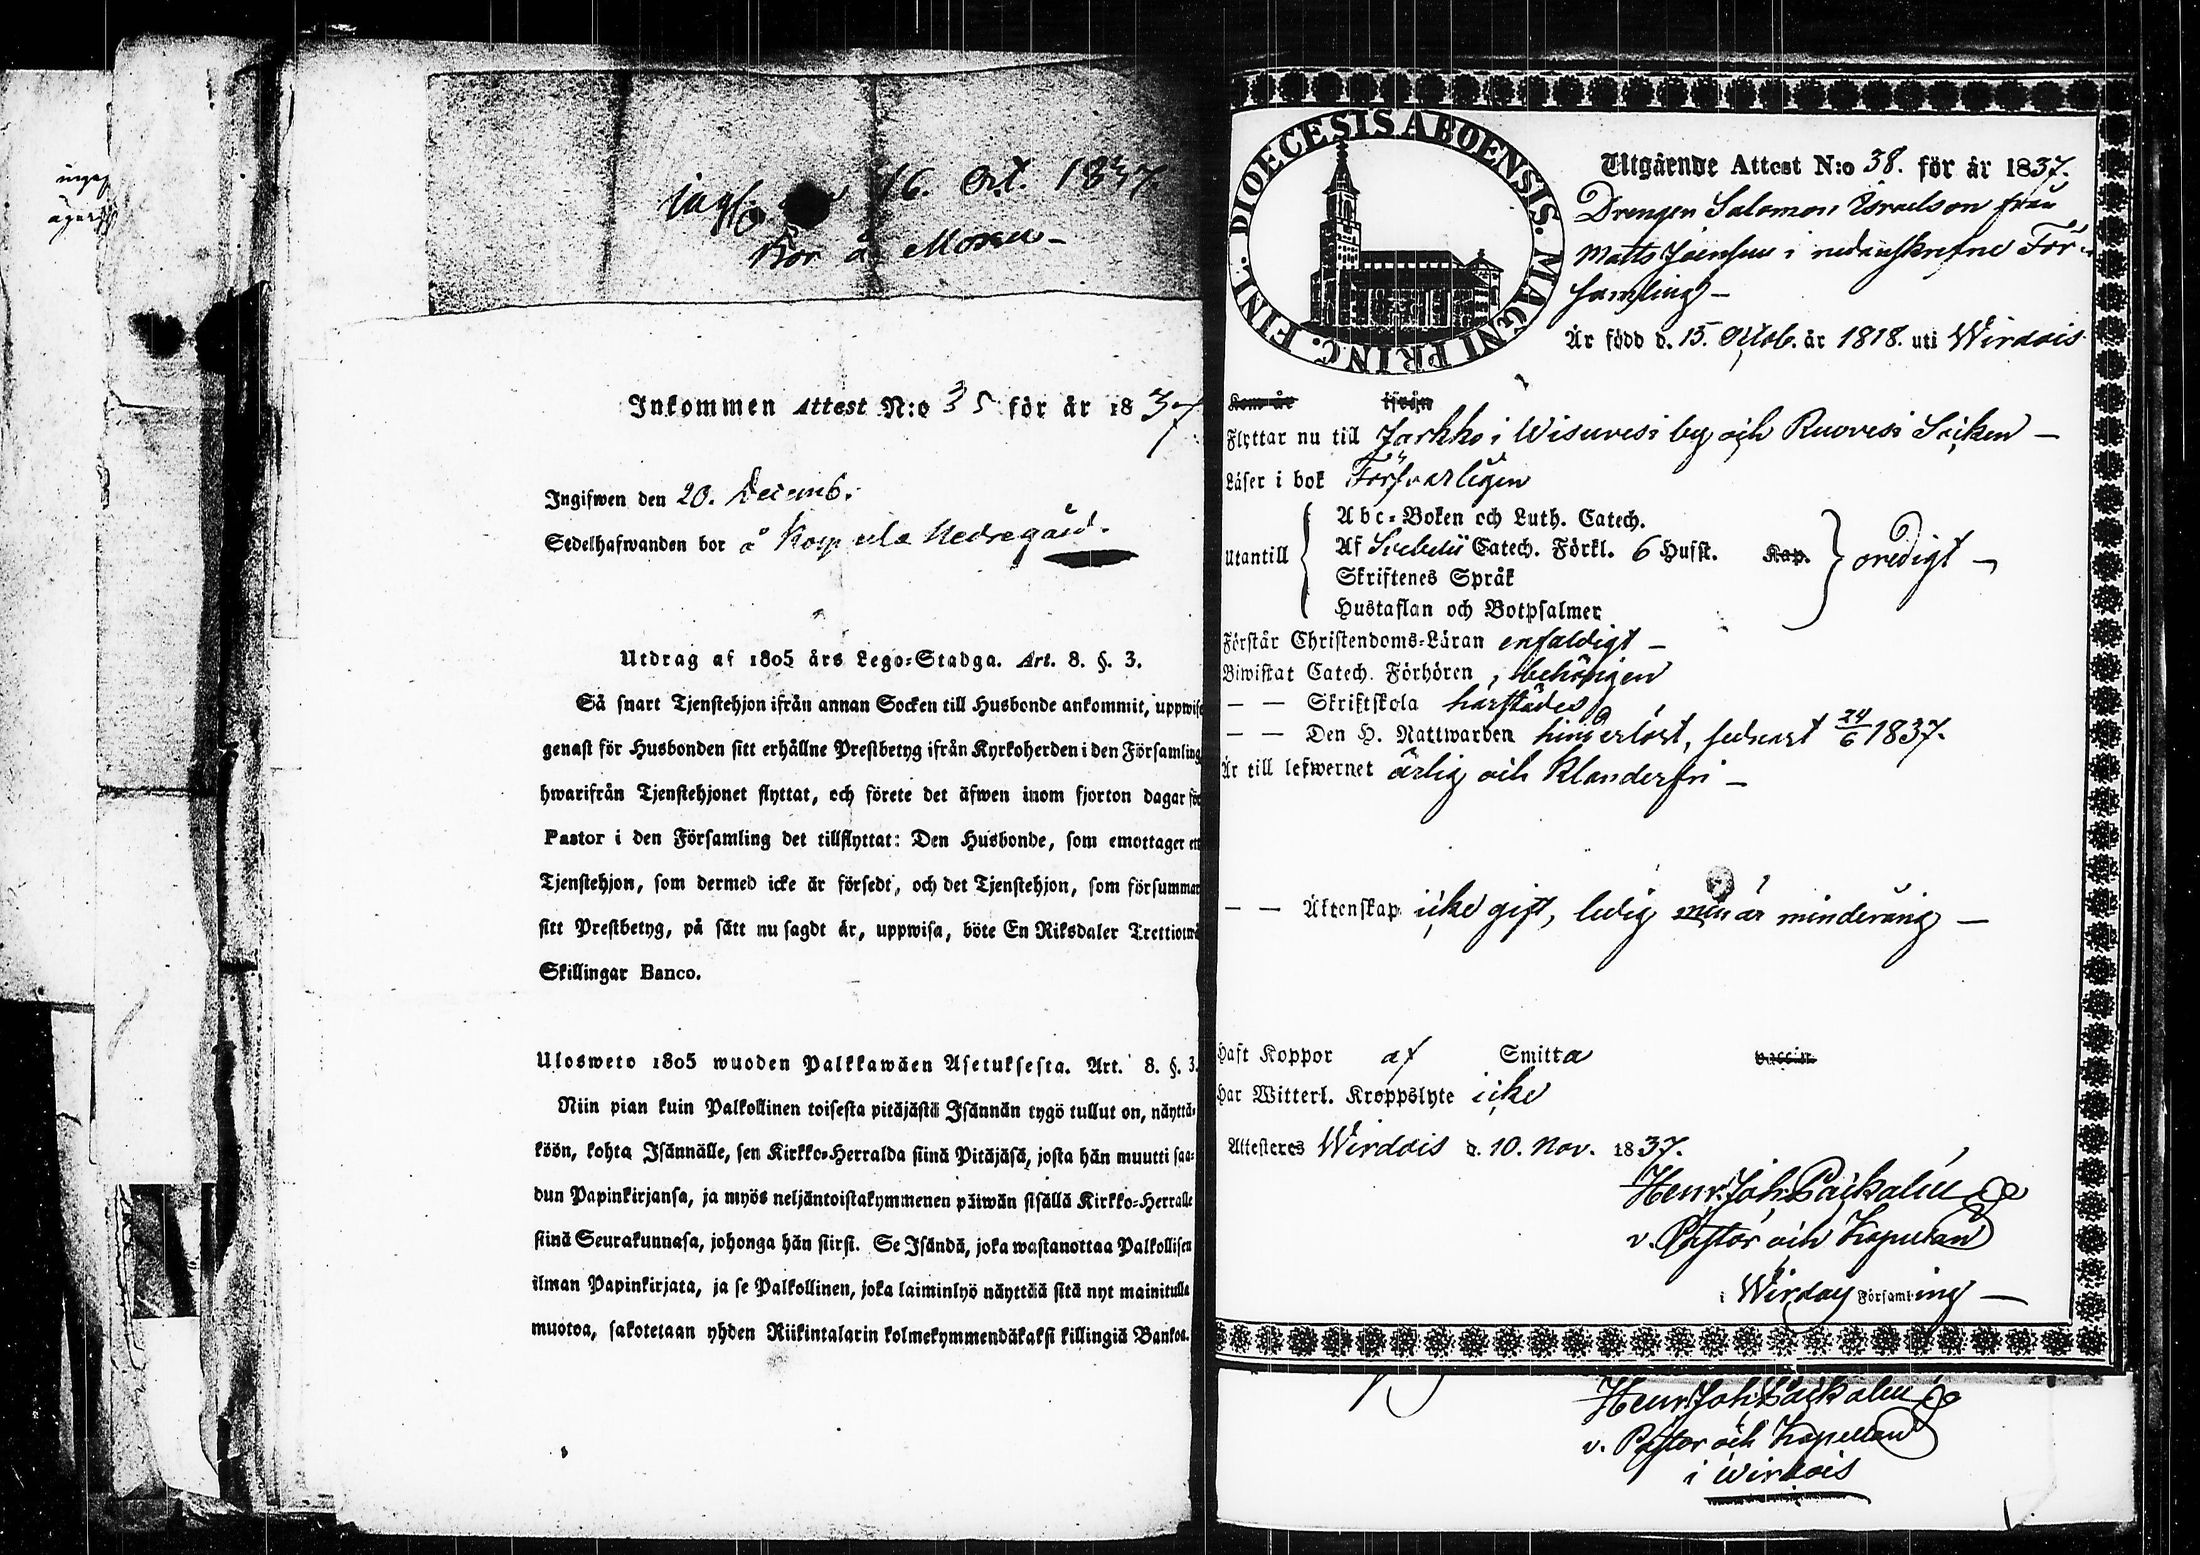 16. Oct. 1837.
Bor å
Inkommen Attest N:o 35 för år 1837
Ingifwen den 20. Decemb.
Sedelhafwanden bor å Nedregård.
Utdrag af 1805 års Lego-Stadga. Art. 8. §. 3.
Så snart Tjenstehjon ifrån annan Socken till Husbonde ankommit, uppwise
genast för Husbonden sitt erhållne Prestbetyg ifrån Kyrkoherden i den Församling
hwarifrån Tjenstehjonet flyttat, och förete det äfwen inom fjorton dagar för
Pastor i den Församling det tillflyttat: Den Husbonde, som emottager ett
Tjenstehjon, som dermed icke är försedt, och det Tjenstehjon, som försummar
sitt Prestbetyg, på sätt nu sagdt är, uppwisa, böte En Riksdaler Trettiotwå
Skillingar Banco.
Ulosweto 1805 wuoden Palkkawäen Asetuksesta. Art. 8. §. 3.
Niin pian kuin Palkollinen toisesta pitäjästä Isännän tygö tullut on, näyttä-
köön, kohta Isännälle, sen Kirkko-Herralda siinä Pitäjäsä, josta hän muutti saa-
dun Papinkirjansa, ja myös neljäntoistakymmenen päiwän sisällä Kirkko-Herralle
siinä Seurakunnasa, johonga hän siirsi. Se Isändä, joka wastanottaa Palkollisen
ilman Papinkirjata, ja se Palkollinen, joka laiminlyö näyttää sitä nyt mainitulla
muotoa, sakotetaan yhden Riikintalarin kolmekymmendäkaksi killingiä Bankoa.
DIOECESIS ABOENSIS. MAGNI PRINC. FINL.
Utgående Attest N:o 38. för år 1837.
Drengen Salomon Israelson från
Matts Joensuu i nedanskrefne För-
samling –
Är född d. 15. Octob. år 1818. uti Wirdois
Kom år ifrån
Flyttar nu till Jarkko i Wisuwesi by och Ruovesi Socken –
Läser i bok Försvarligen
Utantill
Abc-Boken och Luth. Catech.
Af Svebelii Catech. Förkl. 6 Hufst. Kap.
Skriftenes Språk
Hustaflan och Botpsalmer
oredigt –
Förstår Christendoms-Läran enfaldigt –
Biwistat Catech. Förhören, behörigen
– – Skriftskola härstädes
– – Den H. Nattwarden hinderlöst, sednast 24/6 1837.
Är till lefwernet ärlig och klanderfri –
– – Äktenskap icke gift, ledig men är minderårig –
Haft Koppor af Smitta vaccin.
Har Witterl. Kroppslyte icke
Attesteres Wirdois d. 10. Nov. 1837.
Henr. Joh.
v. Pastor och Kapellan
i Wirdois Församling –
Henr. Joh.
v. Pastor och Kapellan
i Wirdois